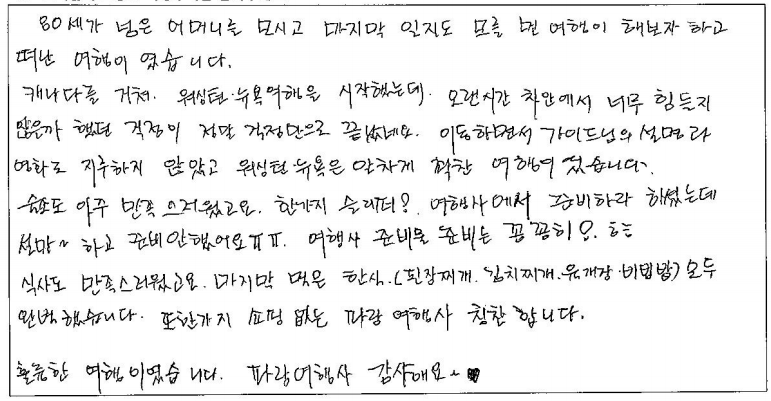 80세가 넘은 어머니를 모시고 마지막 일지도 모를 먼 여행이 해보자 하고
떠난 여행이 였습니다.
캐나다를 거쳐. 워싱턴·뉴욕여행을 시작했는데. 오랜시간 차안에서 너무 힘들지
않은까 했던 걱정이 정말 걱정만으로 끝났네요. 이동하면서 가이드님의 설명과
영화로 지루하지 않았고 워싱턴 뉴욕은 알차게 꽉찬 여행이였습니다.
숙소도 아주 만족스러웠고요. 한가지 슬리퍼? 여행사에서 준비하라 하셨는데
설마~ 하고 준비안했어요ㅠㅠ. 여행사 준비물 준비는 꼼꼼히?. ㅎㅎ
식사도 만족스러웠고요. 마지막 먹은 한식.(된장찌개. 김치찌개. 육개장·비빔밥) 모두
완벽했습니다. 또한가지 쇼핑 없는 파랑 여행사 칭찬 합니다.
훌륭한 여행이였습니다. 파랑여행사 감사해요~ ♥